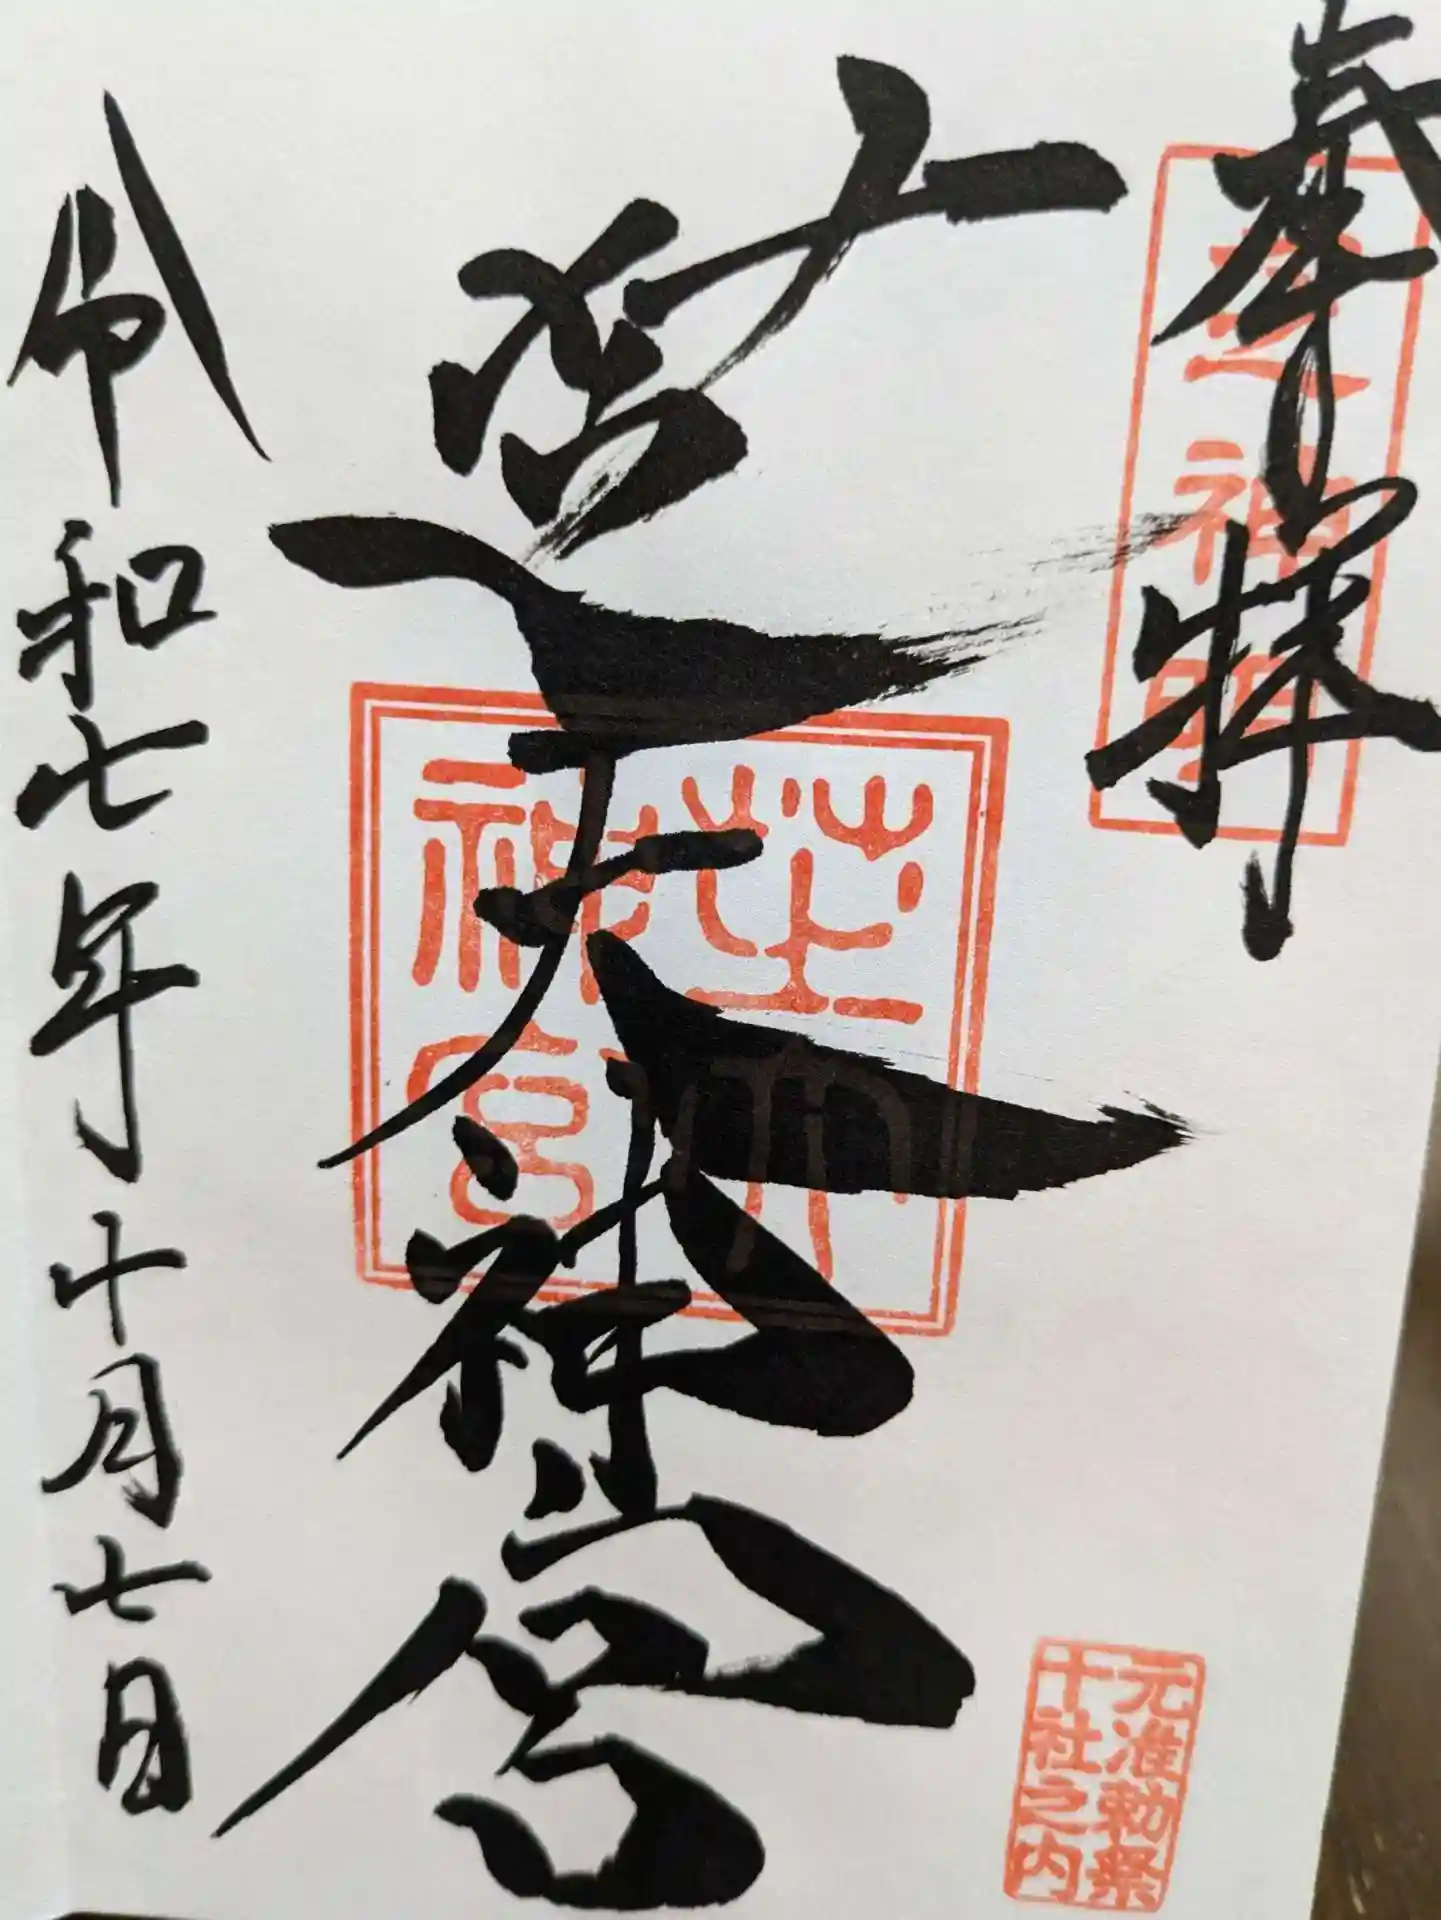 奉拝
芝神明
芝大神宮
芝大
神宮
令和七年十月七日
元准勅祭
十社之内